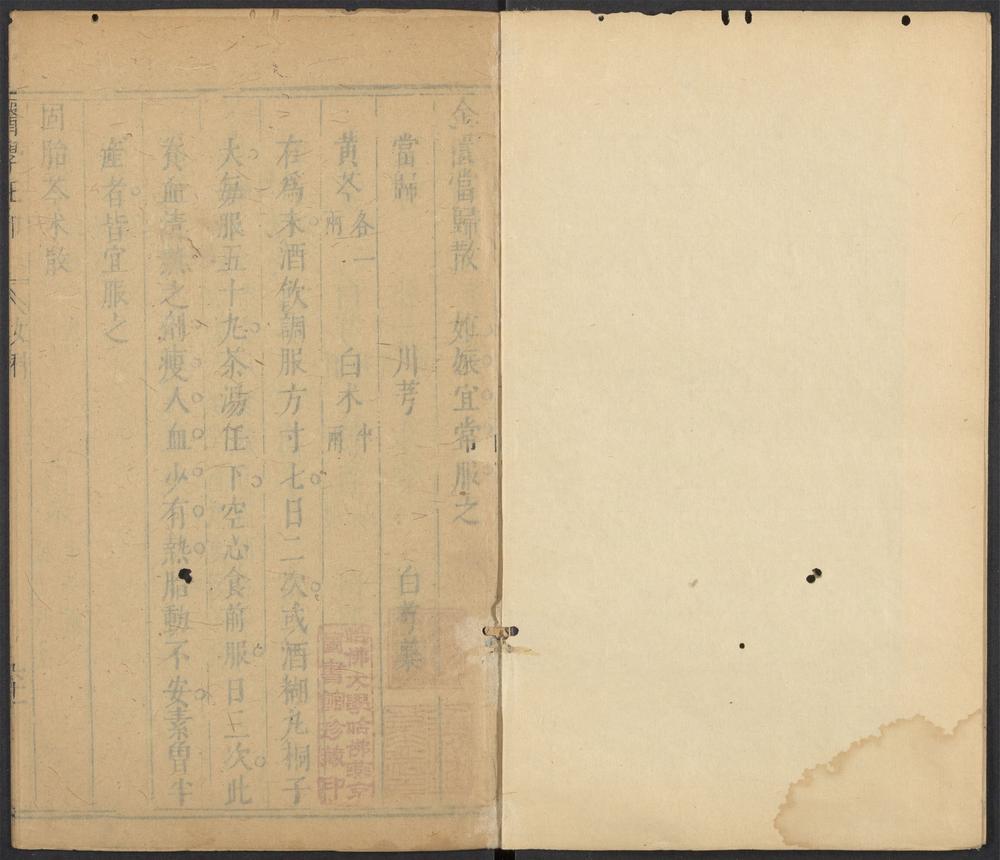 金匱當歸散 妊娠宜常服之
當歸 川芎 白芍藥
黃芩各一兩 白术半兩
右爲末酒飲調服方寸七日二次或酒糊丸桐子
大每服五十丸茶湯任下空心食前服日三次此
養血清熱之劑瘦人血少有熱胎動不安素曾半
產者皆宜服之
固胎芩术散
哈佛大學哈佛燕京
圖書館珍藏印